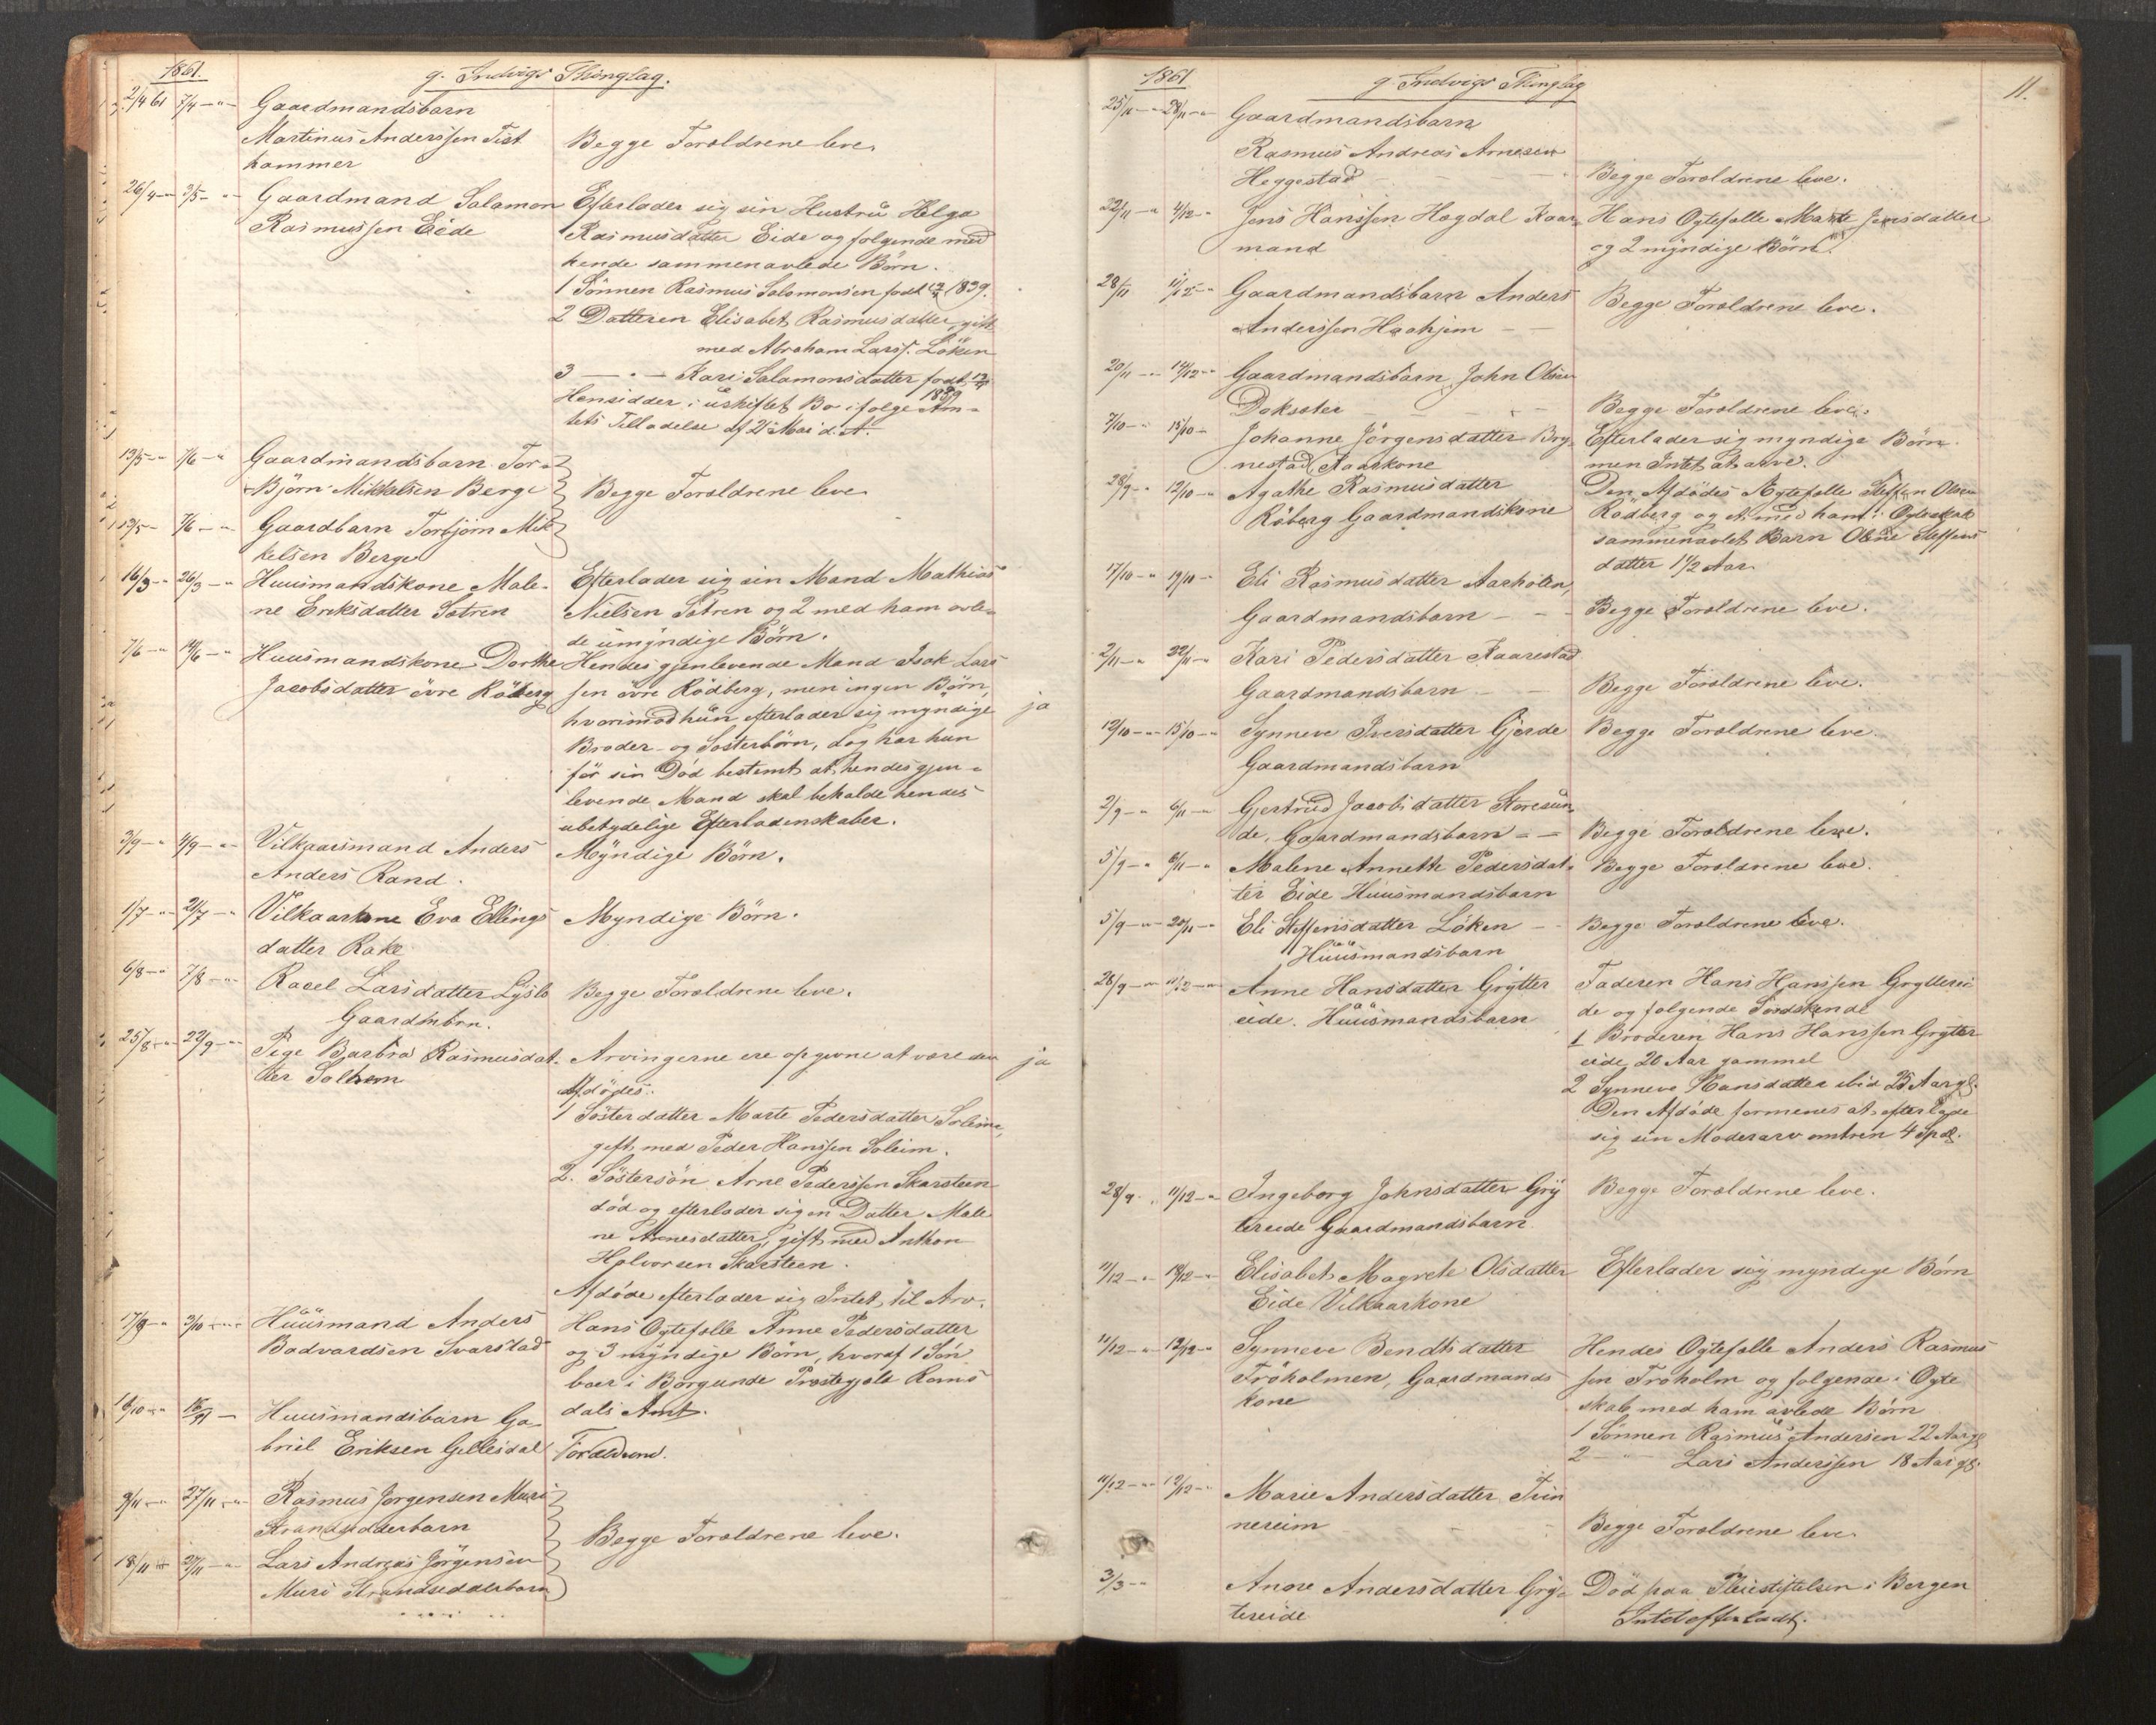 1861.
g. Indvigs Thinglag.
2/4 61 7/4 -"- Gaardmandsbarn
Martinus Anderssen Tist
hammer
Begge Forældrene leve.
26/4 -"- 3/5 -"- Gaardmand Salamon
Rasmussen Eide
Efterlader sig sin Hustru Helga
Rasmusdatter Eide og følgende med
hende sammenavlede Börn.
1 Sönnen Rasmus Salomonsen født 1839.
2 Datteren Elisabet Rasmusdatter, gift
med Abraham Larss. Löken
3 — " — Kari Salamonsdatter født
Hensidder i uskiftet Bo ifølge Am-
tets Tilladelse af 21 Mai d. A.
13/5 -"- 7/6 -"- Gaardmandsbarn Tor-
Björn Mikkelsen Berge
Begge Forældrene leve
13/5 -"- 7/6 -"- Gaardbarn Torbjörn Mik
kelsen Berge
16/3 -"- 26/3 -"- Huusmandskone Male-
ne Eriksdatter Sætren
Efterlader sig sin Mand Mathias
Nielsen Sætren og 2 med ham avle-
de umyndige Börn.
7/6 -"- 14/6 -"- Huusmandskone Dorthe
Jacobsdatter övre Röberg
Hendes gjenlevende Mand Isak Lars
sen övre Rödberg, men ingen Börn,
hvorimod hun efterlader sig myndige
Broder- og Søsterbörn, dog har hun
för sin Död bestemt at hendes gjen-
levende Mand skal beholde hendes
ubetydelige Efterladenskaber.
ja
3/9 -"- 4/9 -"- Vilkaarsmand Anders
Anders Rand.
Myndige Börn.
1/7 -"- 21/7 -"- Vilkaarkone Eva Ellings
datter Rake
Myndige Börn.
6/8 -"- 7/8 -"- Racel Larsdatter Lyslo
Gaardmbrn.
Begge Forældrene leve.
25/8 -"- 22/9 -"- Pige Barbra Rasmusdat-
ter Solhem
Arvingerne ere opgivne at være den
Afdödes:
1 Søsterdatter Marte Pedersdatter Soleim,
gift med Peder Hanssen Soleim.
2. Söstersön Arne Pederssen Skarsteen
död og efterlader sig en Datter Male
ne Arnesdatter, gift med Anthon
Halvorsen Skarsteen.
Afdöde efterlader sig Intet til Arv.
ja
17/9 -"- 3/10 -"- Huusmand Anders
Bodvardsen Svarstad
Hans Ægtefælle Anne Pedersdatter
og 3 myndige Börn, hvoraf 1 Sön
boer i Borgunde Præstegjeld Roms
dals Amt.
16/10 -"- Huusmandsbarn Ga-
briel Eriksen Gillesdal
Forældrene.
9/11 -"- 27/11 -"- Rasmus Jørgensen Muri
Strandsidderbarn
Begge Forældrene leve.
18/11 27/11 -"- Lars Andreas Jörgensen
Muri Strandsidderbarn
1861
g Indvigs Thinglag
11.
25/11 -"- 28/11 -"- Gaardmandsbarn
Rasmus Andreas Arnesen
Heggestad
Begge Forældrene leve.
22/11 -"- 4/12 -"- Jens Hanssen Hogdal Kaar-
mand
Hans Ægtefælle Marte Jensdatter
og 2 myndige Börn.
28/11 11/12 -"- Gaardmandsbarn Anders
Anderssen Haahjem
Begge Forældrene leve.
20/11 -"- 14/12 -"- Gaardmandsbarn John Olsen
Doksæter
Begge Forældrene leve.
7/10 -"- 15/10 - Johanne Jörgensdatter Bry-
nestad, Kaarkone
Efterlader sig myndige Börn
men Intet at arve.
28/9 -"- 12/10 -"- Agathe Rasmusdatter
Röberg Gaardmandskone
Den Afdödes Ægtefælle Steffen Olsen
Rödberg og et med ham i Ægteskab
sammenavlet Barn Oline Steffens
datter 1 1/2 Aar
17/10 -"- 19/10 - Eli Rasmusdatter Aarholen,
Gaardmandsbarn
Begge Forældrene leve.
2/11 -"- 22/11 -"- Kari Pedersdatter Kaarestad
Gaardmandsbarn
Begge Forældrene leve.
12/10 -"- 15/10 -"- Synneve Iversdatter Gjerde
Gaardmandsbarn
Begge Forældrene leve.
2/9 -"- 6/11 -"- Gjertrud Jacobsdatter Storesun
de, Gaardmandsbarn
Begge Forældrene leve.
5/9 -"- 6/11 -"- Malene Annette Pedersdat-
ter Eide Huusmandsbarn
Begge Forældrene leve.
5/9 -"- 20/11 -"- Eli Steffensdatter Löken
Huusmandsbarn
Begge Forældrene leve.
28/9 -"- 11/12 -"- Anne Hansdatter Grytter
eide. Huusmandsbarn
Faderen Hans Hanssen Gryttereі
de og følgende Sødskende
1 Broderen Hans Hanssen Grytter
eide 20 Aar gammel
2 Synneve Hansdatter ibid 25 Aar gl.
Den Afdöde formenes at efterlade
sig sin Moderarv omtren 4 Spd.
28/9 11/12 -"- Ingeborg Johnsdatter Gry
tereide Gaardmandsbarn
Begge Forældrene leve.
11/12 -"- 18/12 -"- Elisabet Magrete Olsdatter
Eide Vilkaarkone
Efterlader sig myndige Börn
11/12 -"- 12/12 -"- Synneve Bendtsdatter
Fröholmen, Gaardmands
kone
Hendes Ægtefælle Anders Rasmus
sen Fröholm og følgende i Ægte
skab med ham avlede Börn
1 Sönnen Rasmus Andersen 22 Aar gl
2 — " Lars Anderssen 18 Aar gl.
11/12 -"- 12/12 -"- Marie Andersdatter Tvin
nereim
Begge Forældrene leve
3/3 -"- Anne Andersdatter Gry-
tereide
Död paa Pleiestiftelsen i Bergen
Intet efterladt.